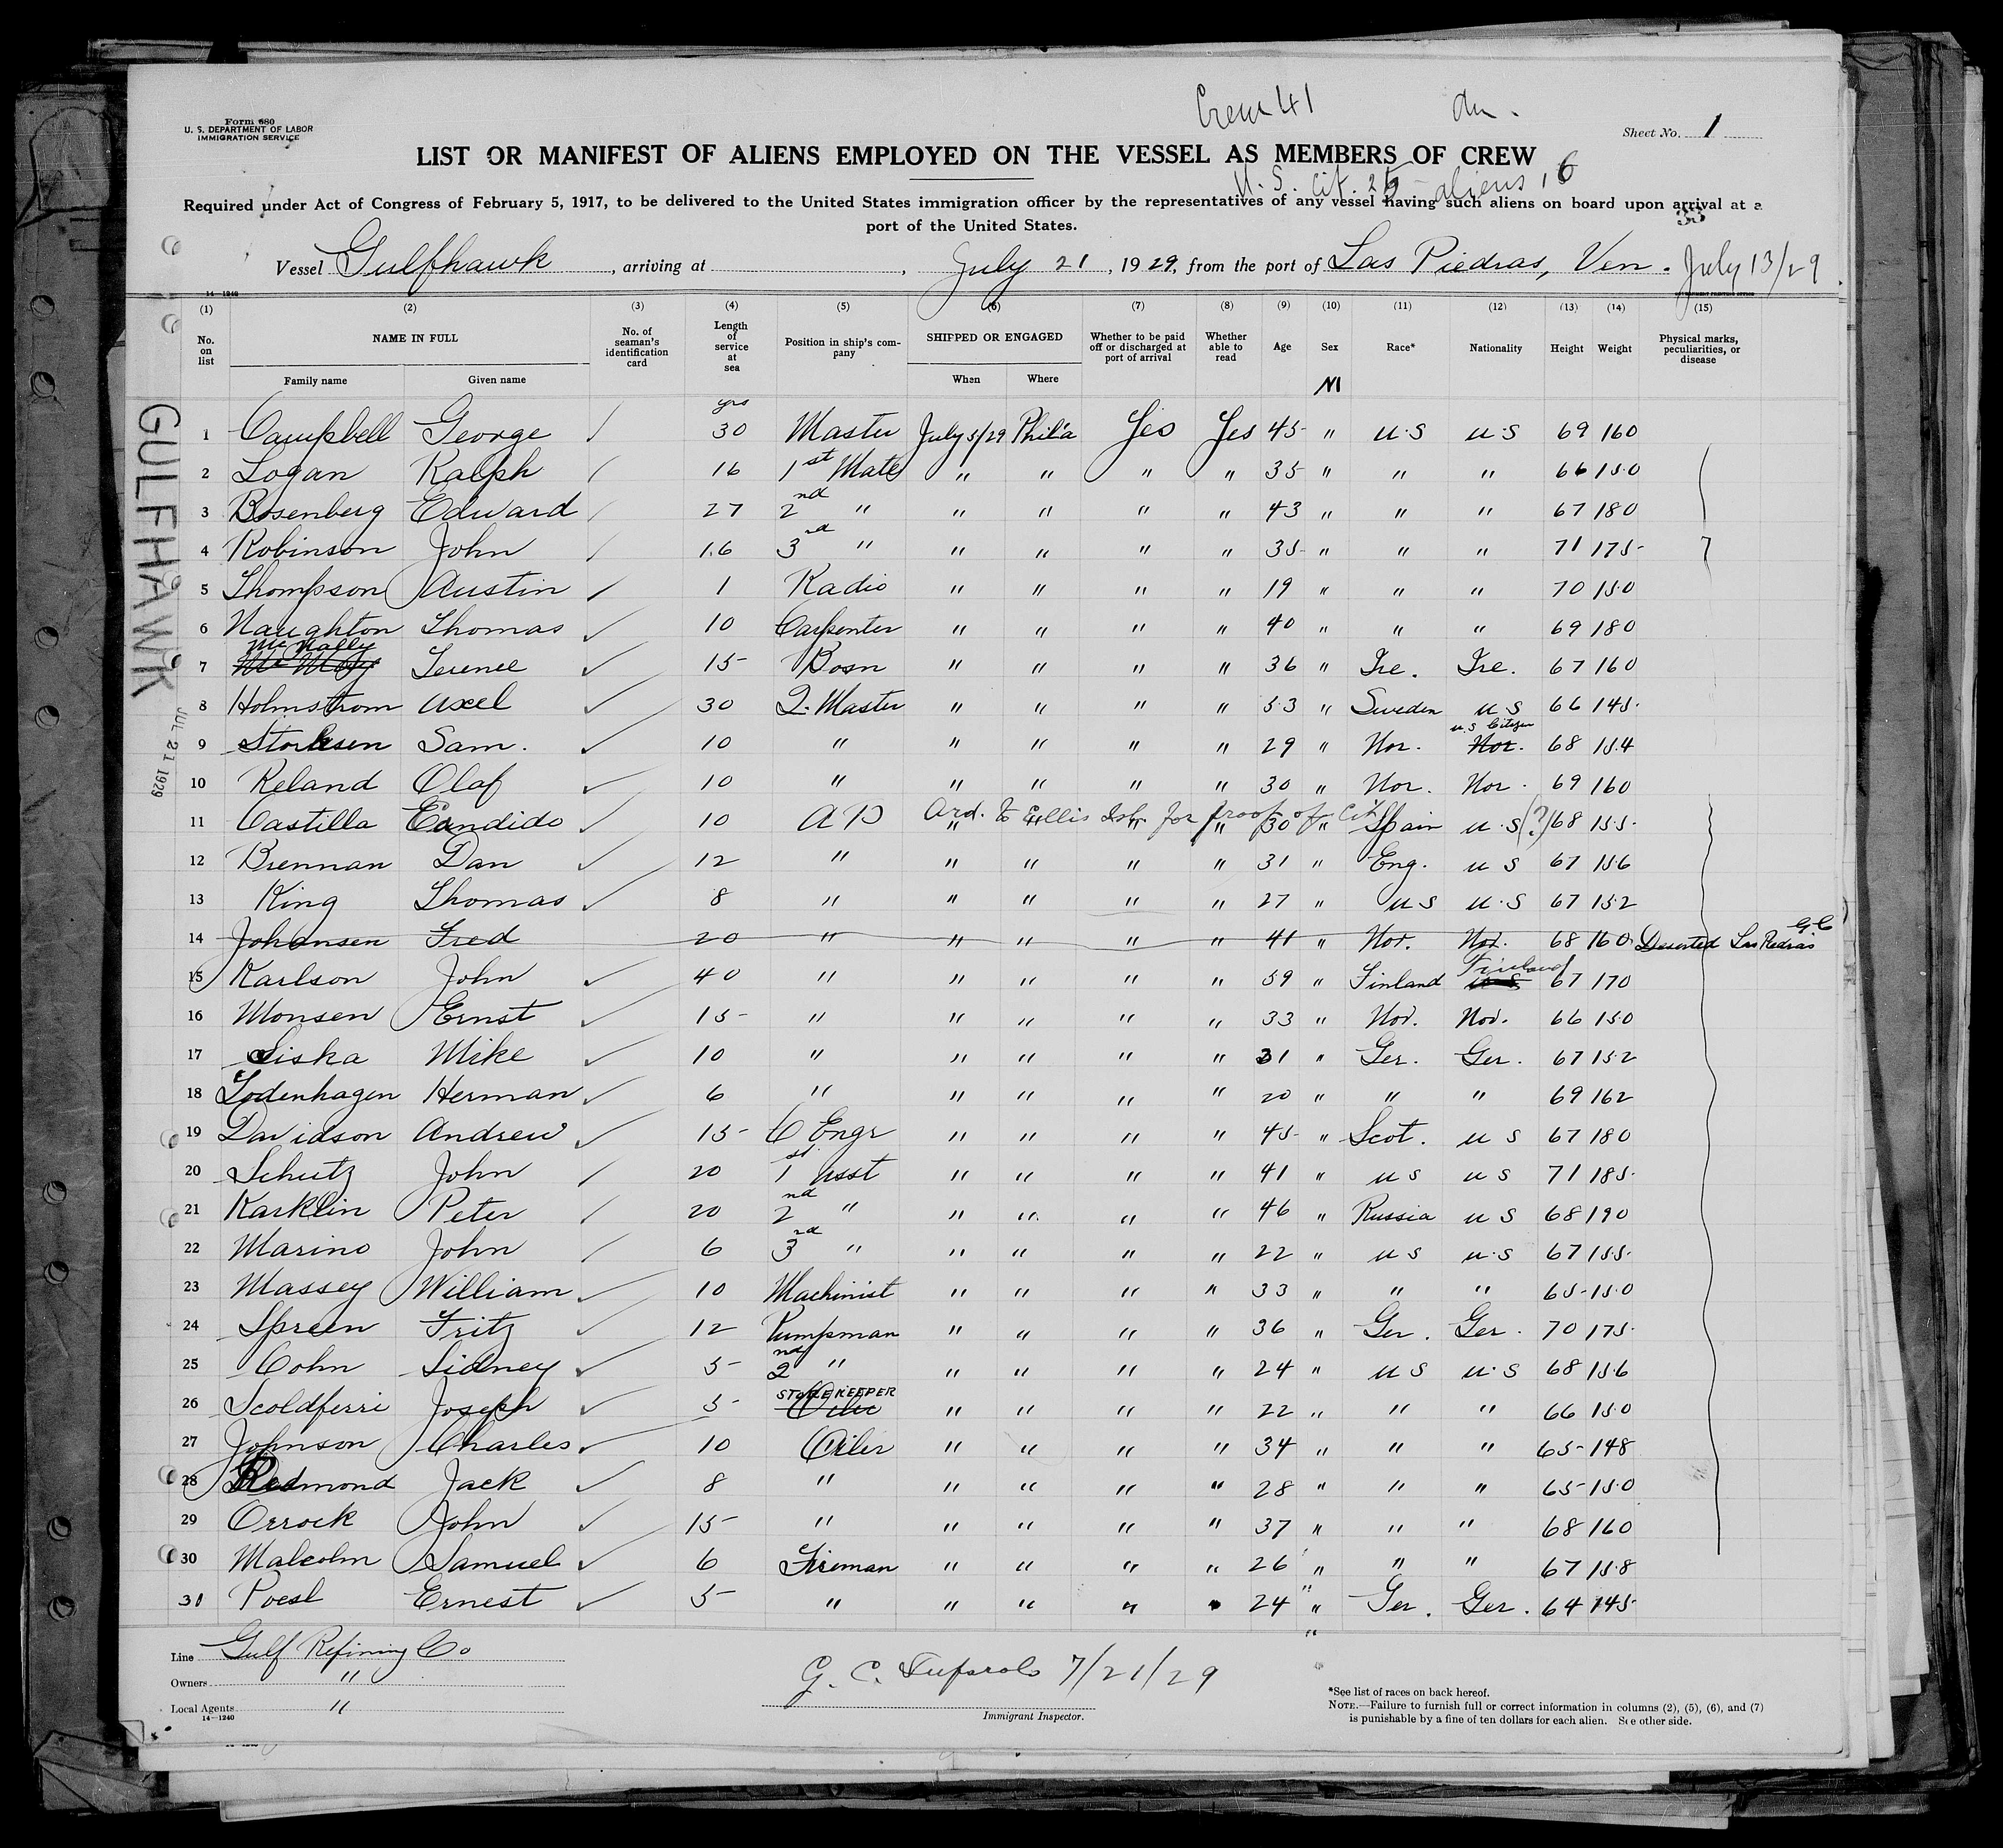 Crew 41
Form 680
U. S. DEPARTMENT OF LABOR
IMMIGRATION SERVICE
Sheet No. 1
LIST OR MANIFEST OF ALIENS EMPLOYED ON THE VESSEL AS MEMBERS OF CREW
U. S. Cit. 25 - aliens 16
Required under Act of Congress of February 5, 1917, to be delivered to the United States immigration officer by the representatives of any vessel having such aliens on board upon arrival at a
port of the United States.
Vessel Gulfhawk, arriving at , July 21, 1929, from the port of Las Piedras, Ven. July 13/29
14—1240
(1) (2) (3) (4) (5) (6) (7) (8) (9) (10) (11) (12) (13) (14) (15)
No. on list NAME IN FULL Family name Given name No. of seaman's identification card Length of service at sea Position in ship's company SHIPPED OR ENGAGED When Where Whether to be paid off or discharged at port of arrival Whether able to read Age Sex Race* Nationality Height Weight Physical marks, peculiarities, or disease
yrs M
1 Campbell George ✓ 30 Master July 5/29 Phil'a Yes Yes 45 " U.S U.S 69 160
2 Logan Ralph ✓ 16 1st Mate " " " " 35 " " " 66 150
3 Bosenberg Edward ✓ 27 2nd " " " " " 43 " " " 67 180
4 Robinson John ✓ 16 3rd " " " " " 35 " " " 71 175
5 Thompson Austin ✓ 1 Radio " " " " 19 " " " 70 150
6 Naughton Thomas ✓ 10 Carpenter " " " " 40 " " " 69 180
7 McNally Terence ✓ 15 Bosn " " " " 36 " Ire. Ire. 67 160
8 Holmstrom Axel ✓ 30 Q. Master " " " " 53 " Sweden U S 66 145
9 Storksen Sam. ✓ 10 " " " " " 29 " Nor. Nor. U.S Citizen 68 154
10 Reland Olaf ✓ 10 " " " " " 30 " Nor. Nor. 69 160
11 Castilla Candido ✓ 10 A B " " " " 30 " Spain U.S (?) 68 155
Ord. to Ellis Isl. for proof of Cit.
12 Brennan Dan ✓ 12 " " " " " 31 " Eng. U S 67 156
13 King Thomas ✓ 8 " " " " " 27 " U S U.S 67 152
14 Johansen Fred 20 " " " " " 41 " Nor. Nor. 68 160 Deserted Las Piedras G.C
15 Karlson John ✓ 40 " " " " " 59 " Finland U S Finland 67 170
16 Monsen Ernst ✓ 15 " " " " " 33 " Nor. Nor. 66 150
17 Siska Mike ✓ 10 " " " " " 31 " Ger. Ger. 67 152
18 Lodenhagen Herman ✓ 6 " " " " " 20 " " " 69 162
19 Davidson Andrew ✓ 15 C Engr " " " " 45 " Scot. U S 67 180
20 Schutz John ✓ 20 1st Asst " " " " 41 " U S U S 71 185
21 Karklin Peter ✓ 20 2nd " " " " " 46 " Russia U S 68 190
22 Marino John ✓ 6 3rd " " " " " 22 " U S U.S 67 155
23 Massey William ✓ 10 Machinist " " " " 33 " " " 65 150
24 Spreen Fritz ✓ 12 Pumpman " " " " 36 " Ger. Ger. 70 175
25 Cohn Sidney ✓ 5 2nd " " " " " 24 " U S U.S 68 156
26 Scoldferri Joseph ✓ 5 Oiler STOREKEEPER " " " " 22 " " " 66 150
27 Johnson Charles ✓ 10 Oiler " " " " 34 " " " 65 148
28 Redmond Jack ✓ 8 " " " " " 28 " " " 65 150
29 Orrock John ✓ 15 " " " " " 37 " " " 68 160
30 Malcolm Samuel ✓ 6 Fireman " " " " 26 " " " 67 158
31 Poesl Ernest ✓ 5 " " " " " 24 " Ger. Ger. 64 145
GULFHAWK
JUL 21 1929
Line Gulf Refining Co
Owners "
Local Agents "
14—1240
G. C. 7/21/29
Immigrant Inspector.
*See list of races on back hereof.
NOTE.—Failure to furnish full or correct information in columns (2), (5), (6), and (7)
is punishable by a fine of ten dollars for each alien. See other side.